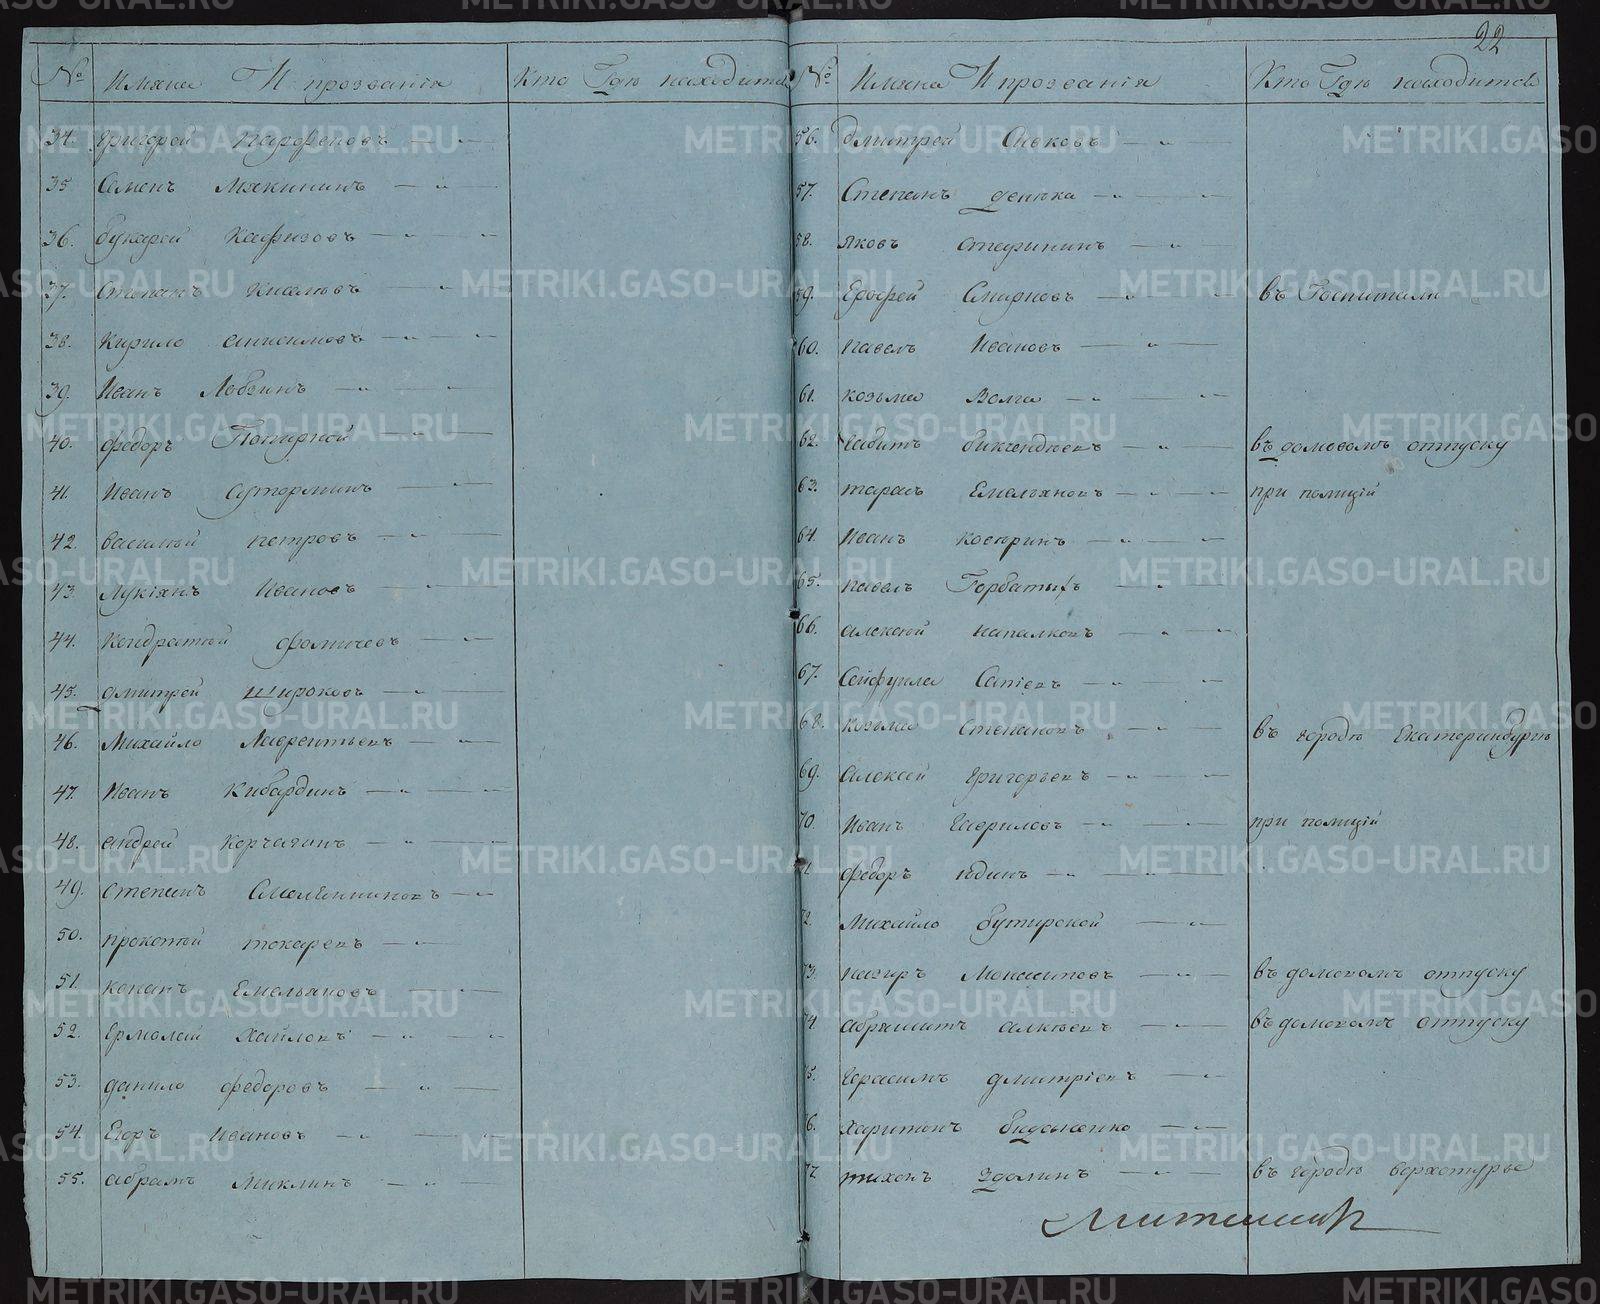 22
№ Имяна И прозванія Кто Где находится
34. Григорей Парфеновъ
35. Семенъ Мякининъ
36. букарей Кафизовъ
37. Степанъ Киселювъ
38. Кирило анисимовъ
39. Иванъ Лобзинъ
40. федоръ
41. Иванъ Сутормінъ
42. василей петровъ
43. Лукіянъ Ивановъ
44. Кондратей фомичевъ
45. дмитрей широковъ
46. Михайло Лаврентьевъ
47. Иванъ Кибардинъ
48. андрей Корчагинъ
49. степанъ
50. прокопей токаревъ
51. кононъ Емельяновъ
52. Ермолай Хайловъ
53. данило федоровъ
54. Егоръ Ивановъ
55. абрамъ Миклинъ
№ Имяна И прозванія Кто Где находится
56. дмитрей
57. Степанъ
58. яковъ
59. Ерофей Смирновъ въ Госпитали
60. павелъ Ивановъ
61. козьма Волга
62. въ домовомъ отпуску
63. тарасъ Емельяновъ при полицій
64. Иванъ
65. павелъ Горбатыхъ
66. алексей папалковъ
67. Сейфулла
68. козьма Степановъ въ городе Екатеринбурге
69. алексей григорьевъ
70. Иванъ Гавриловъ при полицій
71. федоръ юдинъ
72. Михайло бутирской
73. въ домовомъ отпуску
74. въ домовомъ отпуску
75. герасимъ дмитріевъ
76. харитонъ
77. тихонъ въ городе верхотурье